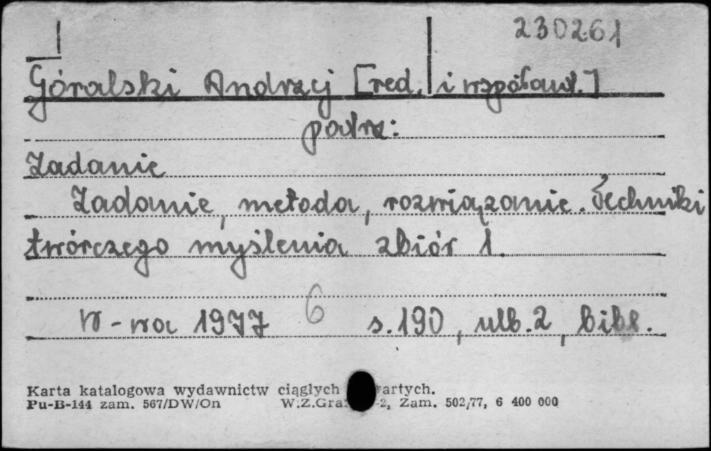 230261
Góralski Andrzej [red. i współaut.]
patrz:
Zadanie
Zadanie, metoda, rozwiązanie. Techniki
twórczego myślenia zbiór 1.
W-wa 1977 6 s. 190, ulb. 2, bibl.
Karta katalogowa wydawnictw ciągłych
Pu-B-144 zam. 567/DW/On W.Z.Graf. -2, Zam. 502/77, 6 400 000